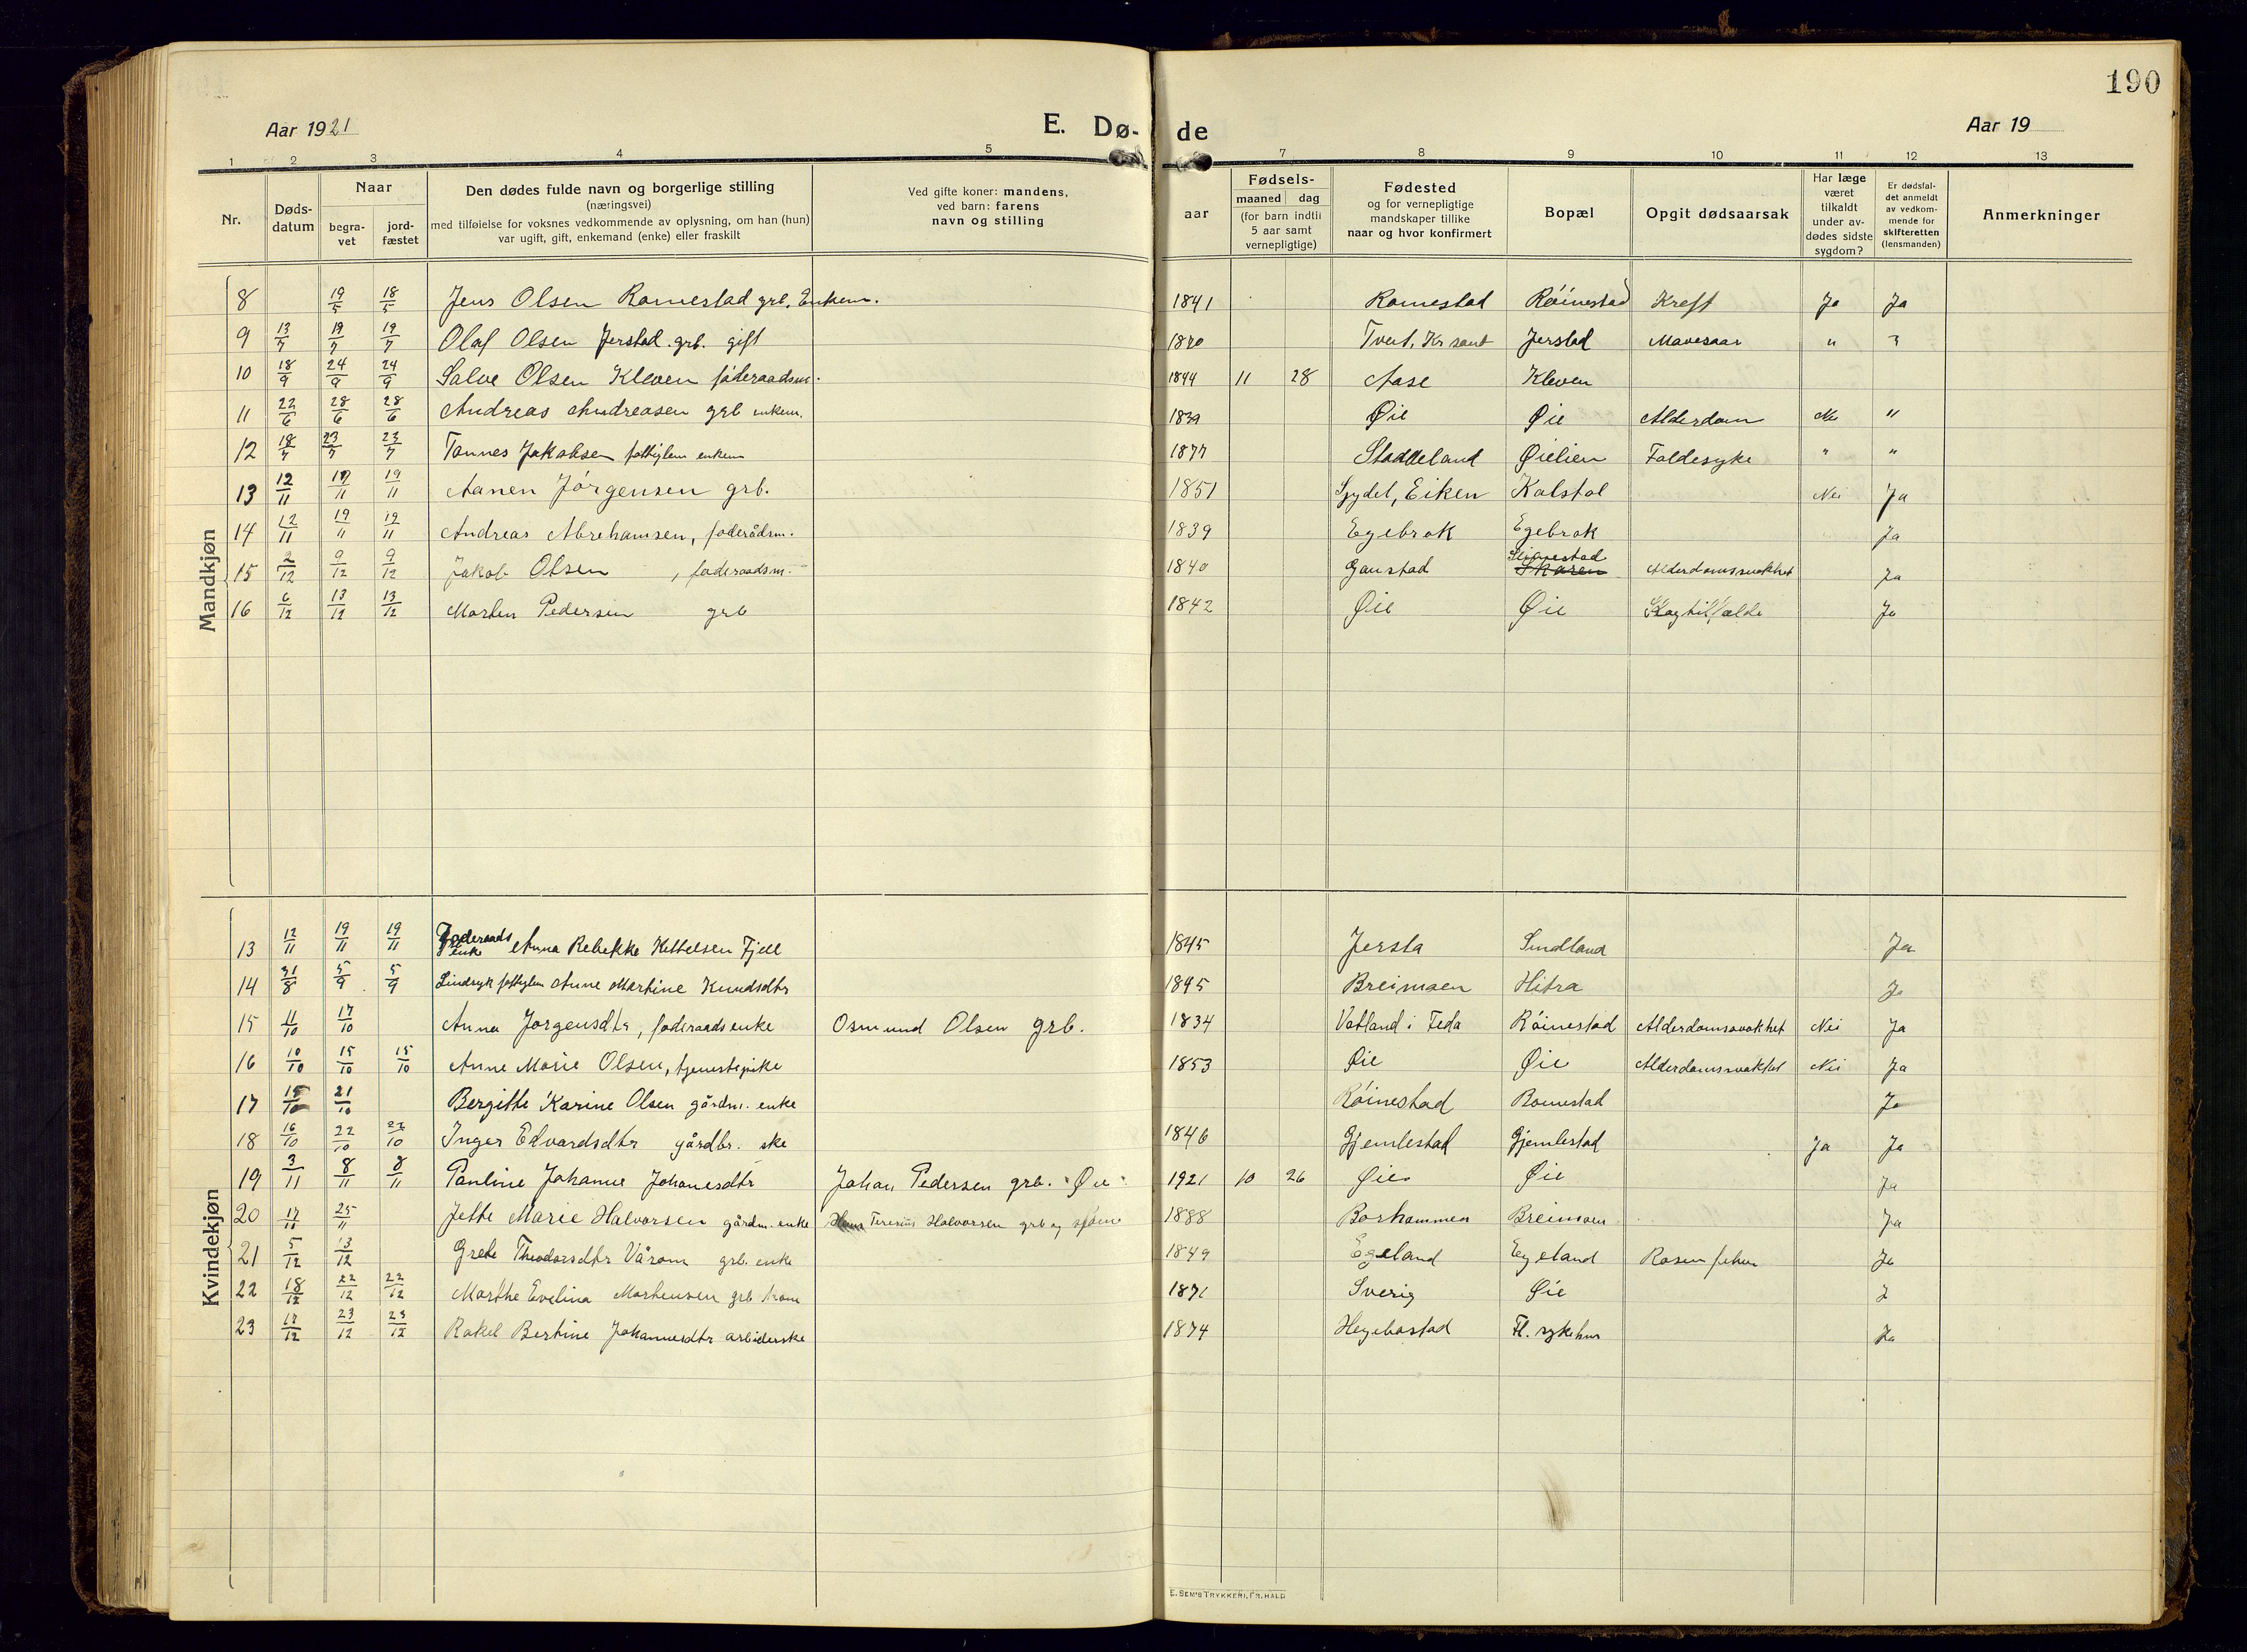 190
Aar 1921 E. Dø- de Aar 19
1 2 3 4 5 7 8 9 10 11 12 13
Nr. Døds-datum Naar begra-vet jord-fæstet Den dødes fulde navn og borgerlige stilling (næringsvei) med tilføielse for voksnes vedkommende av oplysning, om han (hun) var ugift, gift, enkemand (enke) eller fraskilt Ved gifte koner: mandens, ved barn: farens navn og stilling aar Fødsels- maaned dag (for barn indtil 5 aar samt vernepligtige) Fødested og for vernepligtige mandskaper tillike naar og hvor konfirmert Bopæl Opgit dødsaarsak Har læge været tilkaldt under av-dødes sidste sygdom? Er dødsfal-det anmeldt av vedkom-mende for skifteretten (lensmanden) Anmerkninger
Mandkjøn
8 19/5 18/5 Jens Olsen Romestad grb. Enkem. 1841 Romestad Röinestad Kreft Ja Ja
9 13/7 19/7 19/7 Olaf Olsen Jerstad grb. gift Tveit, Kr sand Jerstad Mavesaar "
10 18/9 24/9 24/9 Salve Olsen Kleven föderaadsm. 1844 11 28 Aase Kleven
11 22/6 28/6 28/6 Andreas Andreasen grb enkem. 1839 Øie Øie Alderdom Nei "
12 18/7 23/7 23/7 Tannes Jakobsen fattiglem enkem 1877 Staddeland Øielien Faldesyke " "
13 12/11 19/11 19/11 Aanen Jörgensen grb. 1851 Eiken Kalstol Nei Ja
14 12/11 19/11 19/11 Andreas Abrehamsen, foderådsm. 1839 Egebrok Egebrok Ja
15 2/12 9/12 9/12 Jakob Olsen, foderaadsm. 1840 Gaustad Skaren Alderdomssvakhet Ja
16 6/12 13/12 13/12 Morten Pedersen grb 1842 Øie Øie Slagtilfælde Ja
Kvindekjøn
13 12/11 19/11 19/11 Foderaads enke Anna Rebekke Kettelsen Fjell 1845 Jersta Sindland Ja
14 31/8 5/9 5/9 Sindsyk fattiglem Anne Martine Knudsdtr 1895 Breimoen Hitra Ja
15 11/10 17/10 Anna Jorgensdtr, foderaadsenke Osmund Olsen grb. 1834 Vatland i Feda Röinestad Alderdomssvakhet Nei Ja
16 10/10 15/10 15/10 Anne Marie Olsen, tjenestepike 1853 Øie Øie Alderdomssvakhet Nei Ja
17 15/10 21/10 Bergitte Karine Olsen gårdm. enke Röinestad Romestad Ja
18 16/10 22/10 22/10 Inger Edvardsdtr gårdbr. ske 1846 Gjemlestad Gjemlestad Ja Ja
19 3/11 8/11 8/11 Pauline Johanne Johanesdtr Johan Pedersen grb. Øie 1921 10 26 Øie Øie Ja
20 17/11 25/11 Jette Marie Halvorsen gårdm. enke Teresius Halvorsen grb og 1888 Borhammen Breimoen Ja
21 5/12 13/12 Grete Theodorsdtr Vårom grb. enke 1849 Egeland Egeland Rosen feber Ja
22 18/12 22/12 22/12 Marthe Evelina Mortensen grb kone 1871 Sverig Øie
23 17/12 23/12 23/12 Rakel Bertine Johannesdtr arbiderske 1874 Hegebostad Fl. sykehus Ja
E. SEM'S TRYKKERI, FR.HALD